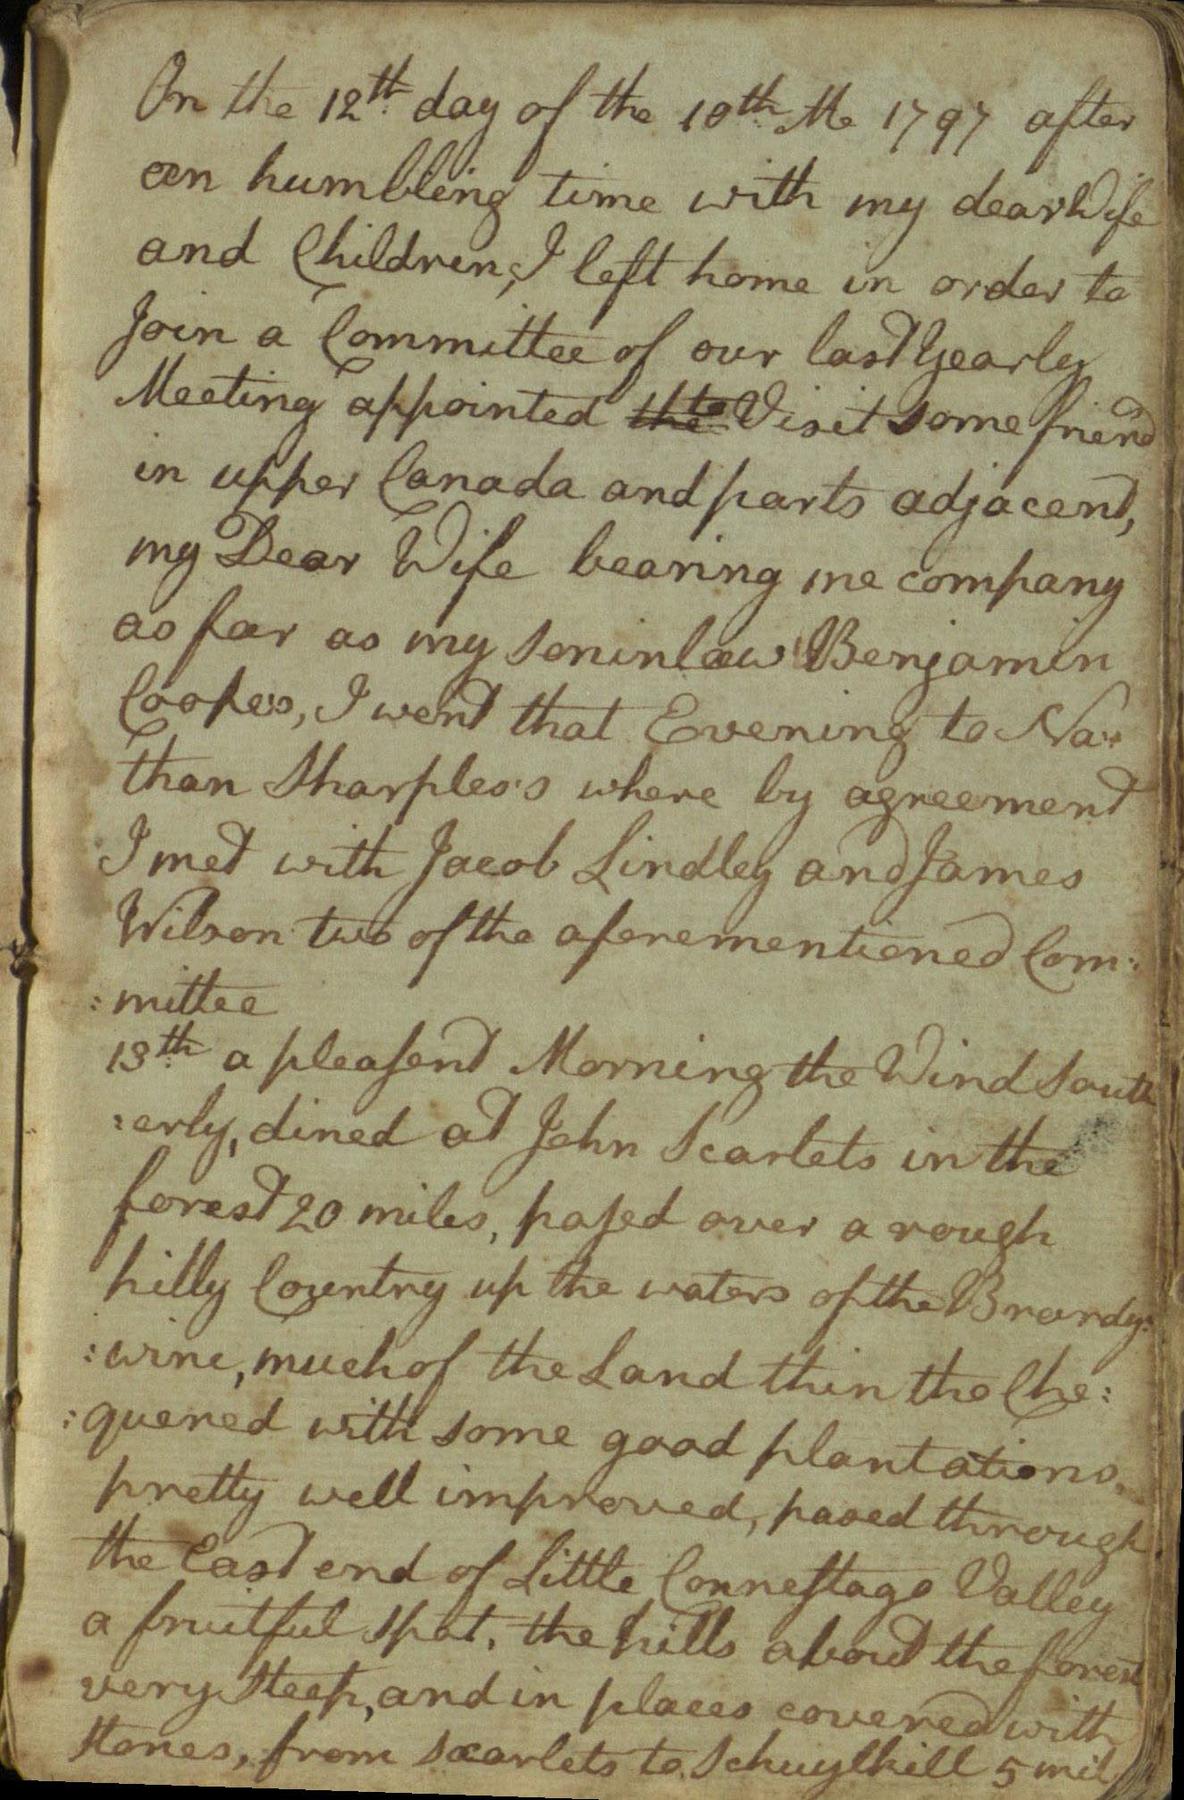 On the 12th day of the 10th Mo 1797 after
an humbling time with my dear Wife
and Children, I left home in order to
Join a Committee of our last Yearly
Meeting appointed the to Visit some friend
in upper Canada and parts adjacent,
my Dear Wife bearing me company
as far as my soninlaw Benjamin
Coopers, I went that Evening to Na:
than Sharples's where by agreement
I met with Jacob Lindley and James
Wilson two of the aforementioned Com:
:mittee
13th a pleasent Morning the Wind South
:erly, dined at John Scarlets in the
forest 20 miles, pased over a rough
hilly Country up the waters of the Brandy:
:wine, much of the Land thin tho Che:
:quered with some good plantations,
pretty well improved, pased through
the East end of Little Connestago Valley
a fruitful spot, the hills about the forest
very steep, and in places covered with
stones, from scarlets to Schuylkill 5 mil